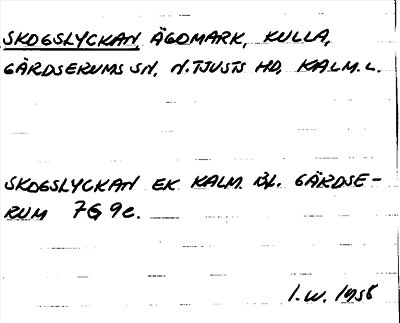 SKOGSLYCKAN, ÄGOMARK, KULLA,
GÄRDSERUMS SN, N. TJUSTS HD, KALM. L.
SKOGSLYCKAN EK KALM. BL. GÄRDSE-
RUM 7G 9c.
I.W. 1958